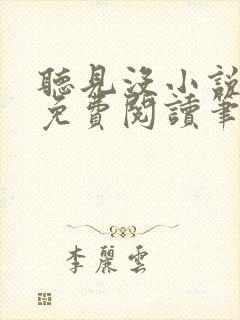 聽見沒小說
免費閱讀筆
李麗雲